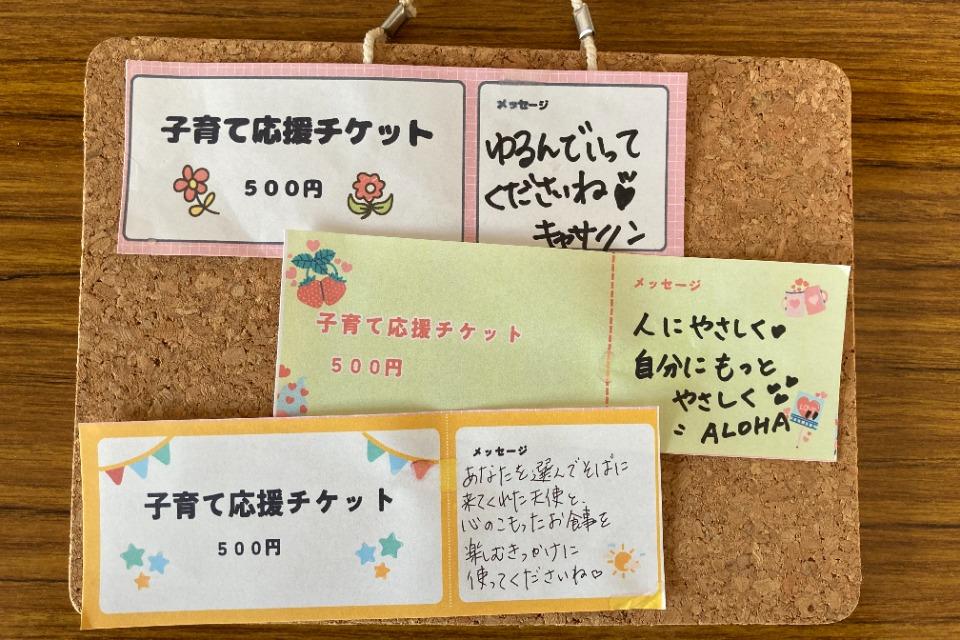 子育て応援チケット
500円
メッセージ
ゆるんでいって
くださいね♥
キャサリン
子育て応援チケット
500円
メッセージ
人にやさしく♥
自分にもっと
やさしく♥
ALOHA"
子育て応援チケット
500円
メッセージ
あなたを選んでそばに
来てくれた天使と、
心のこもったお食事を
楽しむきっかけに
使ってくださいね♡